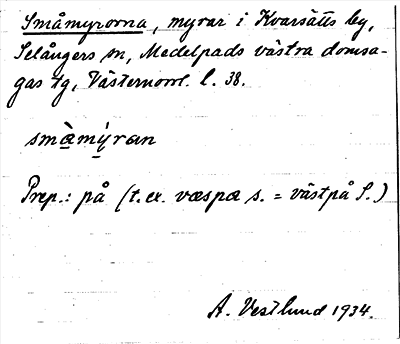 Småmyrorna, myrar i Kvarsätts by,
Selångers sn, Medelpads västra domsa-
gas tg, Västernorrl. l. 38.
småmýran
Prep.: på (t. ex. væspæ s. = västpå S.)
A. Vestlund 1934.